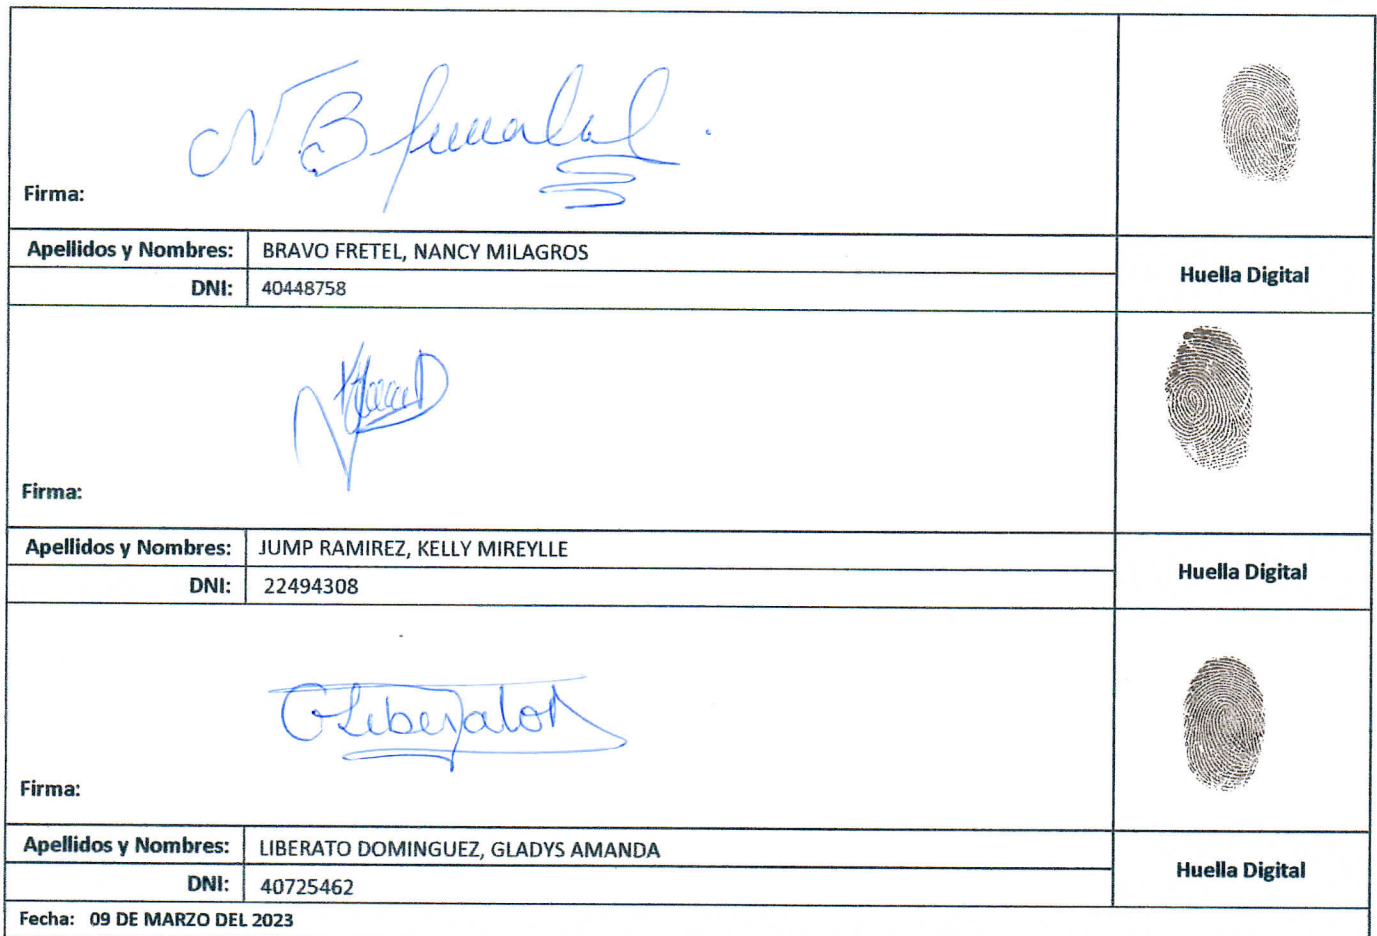 Firma:
Apellidos y Nombres: BRAVO FRETEL, NANCY MILAGROS
DNI: 40448758
Huella Digital
Firma:
Apellidos y Nombres: JUMP RAMIREZ, KELLY MIREYLLE
DNI: 22494308
Huella Digital
Liberato
Firma:
Apellidos y Nombres: LIBERATO DOMINGUEZ, GLADYS AMANDA
DNI: 40725462
Huella Digital
Fecha: 09 DE MARZO DEL 2023